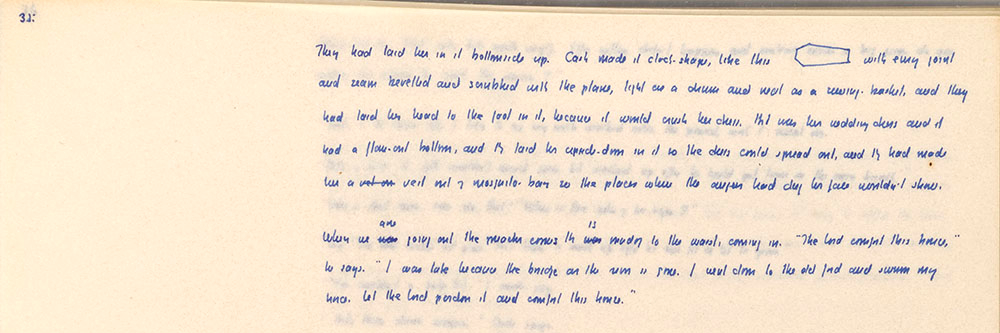 32.
They had laid her in it bottomside up. Cash made it clock-shape, like this with every joint
and seam bevelled and scrubbed with the plane, tight as a drum and neat as a sewing-basket, and they
had laid her head to the foot in it, because it would crush her dress. It was her wedding dress and it
had a flare-out bottom, and they laid her upside-down in it so the dress could spread out, and they had made
her a veil out of mosquito-bar so the places where the augers had dug her face wouldn't show.
When we are going out the preacher comes. He is muddy to the waist, coming in. "The Lord comfort this house,"
he says. "I was late because the bridge on the river is gone. I went down to the old ford and swum my
horse. Let the Lord pardon it and comfort this house."